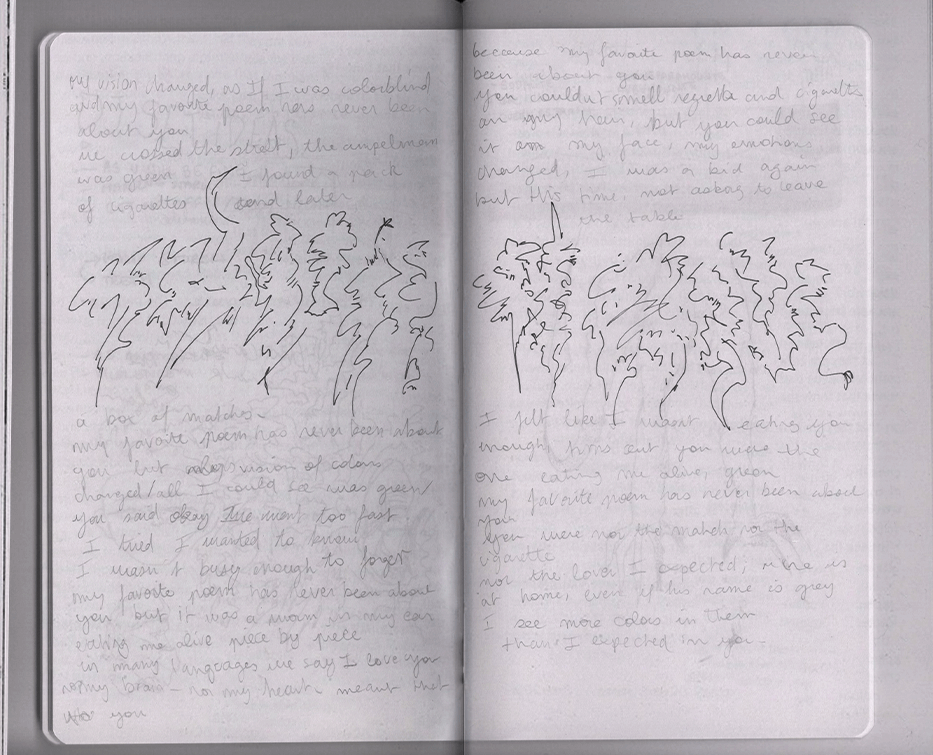 my vision changed, as If I was colorblind
and my favorite poem has never been
about you
we crossed the street, the ampelmann
was green I found a pack
of cigarettes and later
a box of matches
my favorite poem has never been about
you but vision of colors
changed/all I could see was green/
you said okay we went too fast
I tried I wanted to know
I wasn't busy enough to forget
my favorite poem has never been about
you but it was a worm in my ear
eating me alive piece by piece
in many languages we say I love you
my brain - nor my heart meant that
you
because my favorite poem has never
been about you
you couldn't smell regrette and cigarette
on my hair, but you could see
it on my face, my emotions
changed, I was a kid again
but this time, not asking to leave
the table
I felt like I wasn't eating you
enough, turns out you were the
one eating me alive, green
my favorite poem has never been about
you
you were nor the match nor the
cigarette
nor the lover I expected, mine is
at home, even if his name is grey
I see more colors in them
than I expected in you -